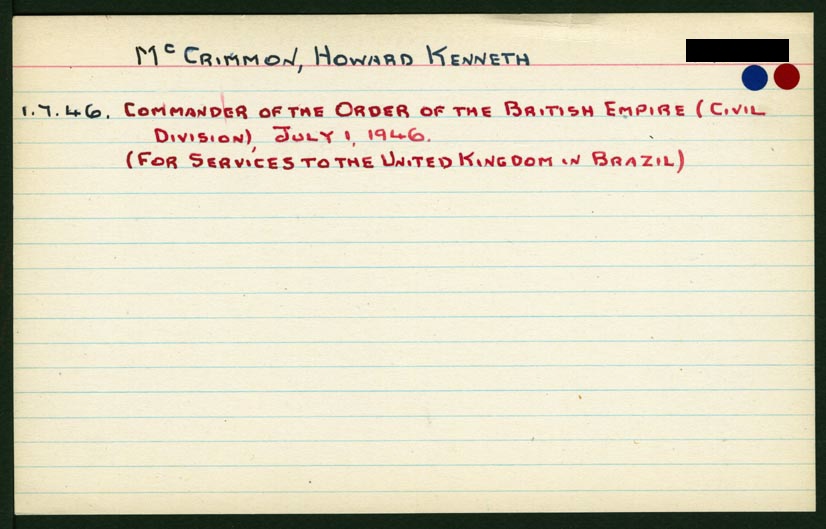 McCRIMMON, HOWARD KENNETH
1.7.46. COMMANDER OF THE ORDER OF THE BRITISH EMPIRE (CIVIL
DIVISION), JULY 1, 1946.
(FOR SERVICES TO THE UNITED KINGDOM IN BRAZIL)